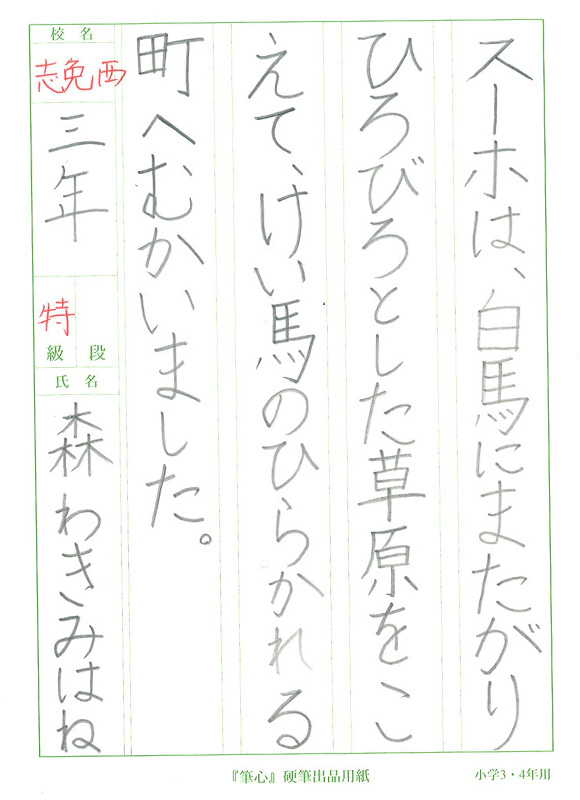 スーホは、白馬にまたがり
ひろびろとした草原をこ
えて、けい馬のひらかれる
町へむかいました。
校名
志免西
三年
特
級段
氏名
森わきみはね
『筆心』硬筆出品用紙
小学3・4年用